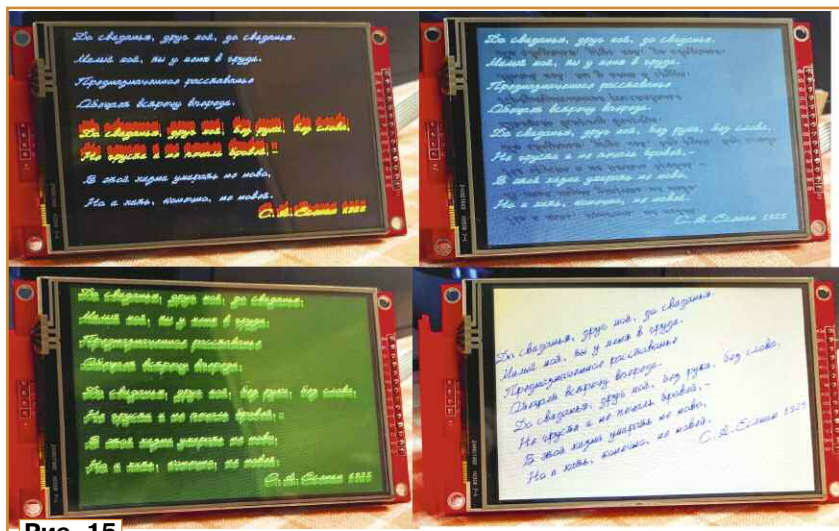 До свиданья, друг мой, до свиданья.
Милый мой, ты у меня в груди.
Предназначенное расставанье
Обещает встречу впереди.
До свиданья, друг мой, без руки, без слова,
Не грусти и не печаль бровей, -
В этой жизни умирать не ново,
Но и жить, конечно, не новей.
С. А. Есенин 1925
До свиданья, друг мой, до свиданья.
Милый мой, ты у меня в груди.
Предназначенное расставанье
Обещает встречу впереди.
До свиданья, друг мой, без руки, без слова,
Не грусти и не печаль бровей, -
В этой жизни умирать не ново,
Но и жить, конечно, не новей.
С. А. Есенин 1925
До свиданья, друг мой, до свиданья.
Милый мой, ты у меня в груди.
Предназначенное расставанье
Обещает встречу впереди.
До свиданья, друг мой, без руки, без слова,
Не грусти и не печаль бровей, -
В этой жизни умирать не ново,
Но и жить, конечно, не новей.
С. А. Есенин 1925
До свиданья, друг мой, до свиданья.
Милый мой, ты у меня в груди.
Предназначенное расставанье
Обещает встречу впереди.
До свиданья, друг мой, без руки, без слова,
Не грусти и не печаль бровей, -
В этой жизни умирать не ново,
Но и жить, конечно, не новей.
С. А. Есенин 1925
Рис. 15